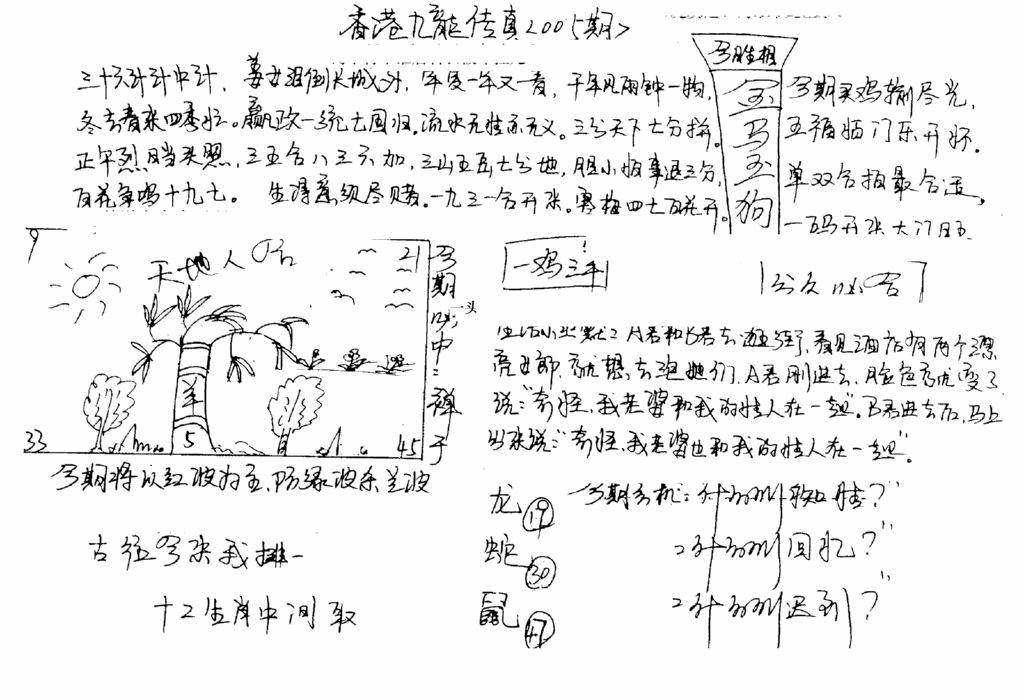 香港九龍传真2005期
三十六计计中计，姜女泪倒长城外，年复一年又一春，千年见雨钟一物，
冬去春来四季忙。嬴政一统七国归，流水无情亦无义。三分天下七分拼。
正午烈日当头照，三五合八三六加，三山五岳七分地，胆小怕事退三分，
百花争鸣十九七。生得意须尽赌。一九三一合开来。寒梅四七百花开。
今期买鸡输尽光，
五福临门乐开怀。
单双合拍最合适，
一码开来大门
金
马
玉
狗
9
21
天地人合
羊
5
33
45
今期必中一头
二禅子
一鸡三羊
分久必合
A君和B君去逛街，看见酒店有两个漂
亮女郎，就想去泡她们，A君刚进去，脸色就变了
说："奇怪，我老婆和我的情人在一起"。B君进去后，马上
出来说："奇怪，我老婆也和我的情人在一起"。
今期将以红波为主、防绿波杀兰波
龙 19
蛇 30
鼠 47
今期玄机：
回忆？"
迟到？"
古径今来我排一
十二生肖中间取